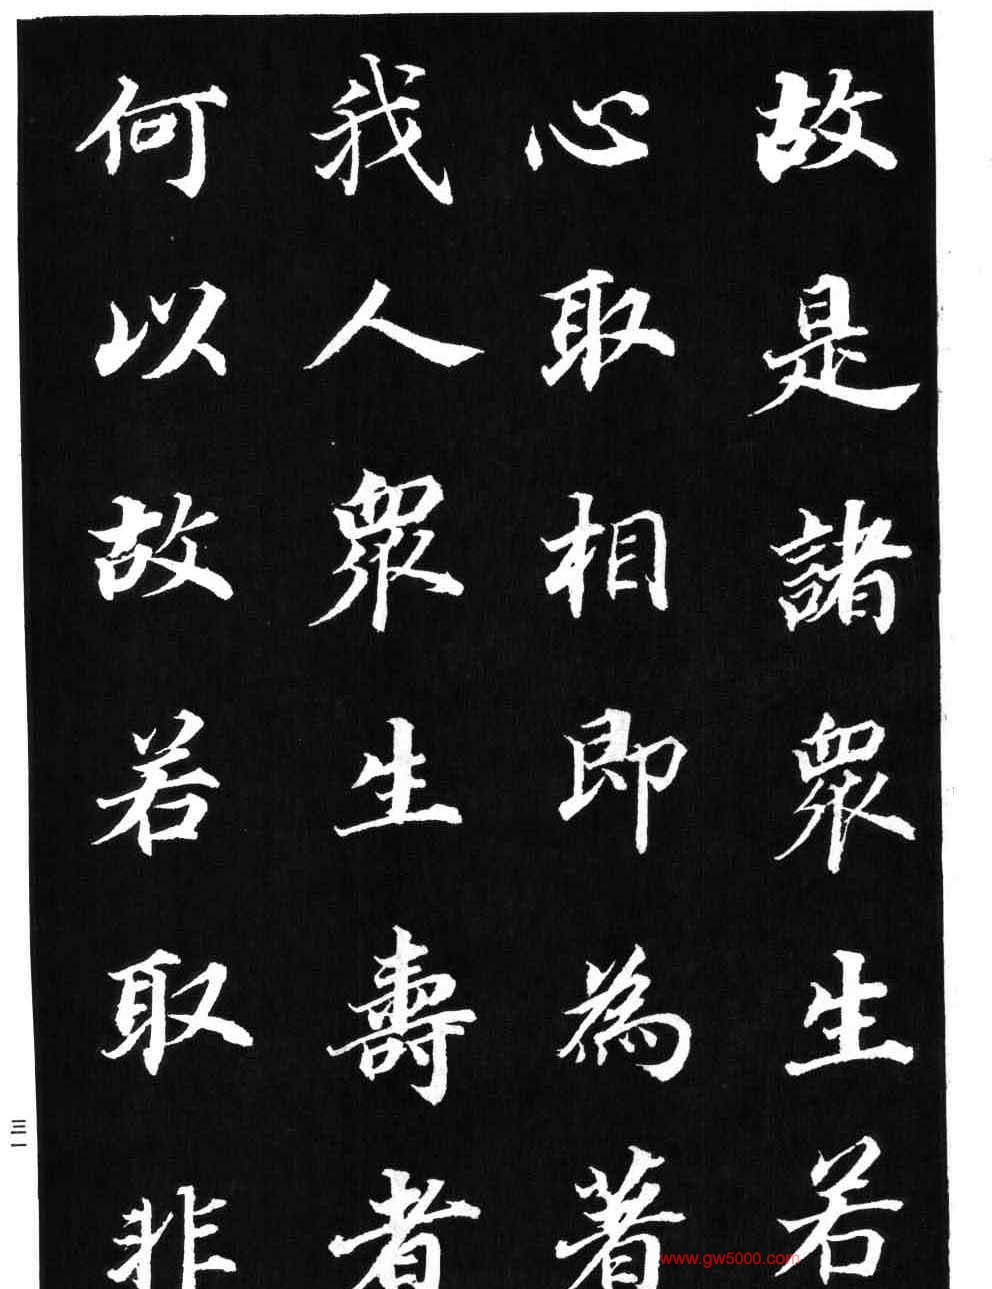 故是諸衆生若
心取相即為著
我人衆生壽者
何以故若取非
三一
www.gw5000.com